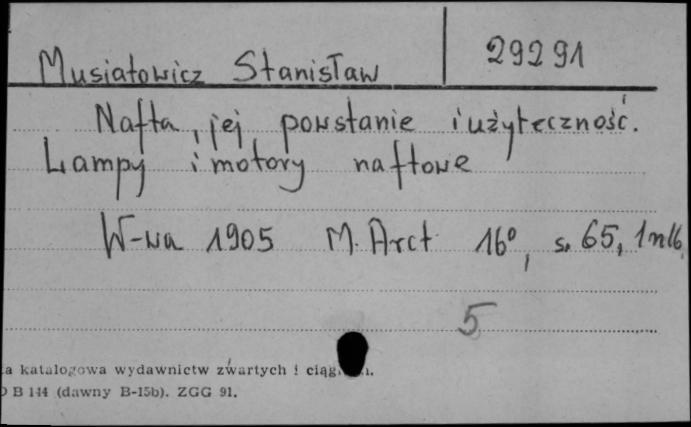 Musiatowicz Stanisław 29291
Nafta, jej powstanie i użyteczność.
Lampy i motory naftowe
W-wa 1905 M. Arct 16°, s. 65, 1 nlb.
5
a katalogowa wydawnictw zwartych i
B 144 (dawny B-15b). ZGG 91.